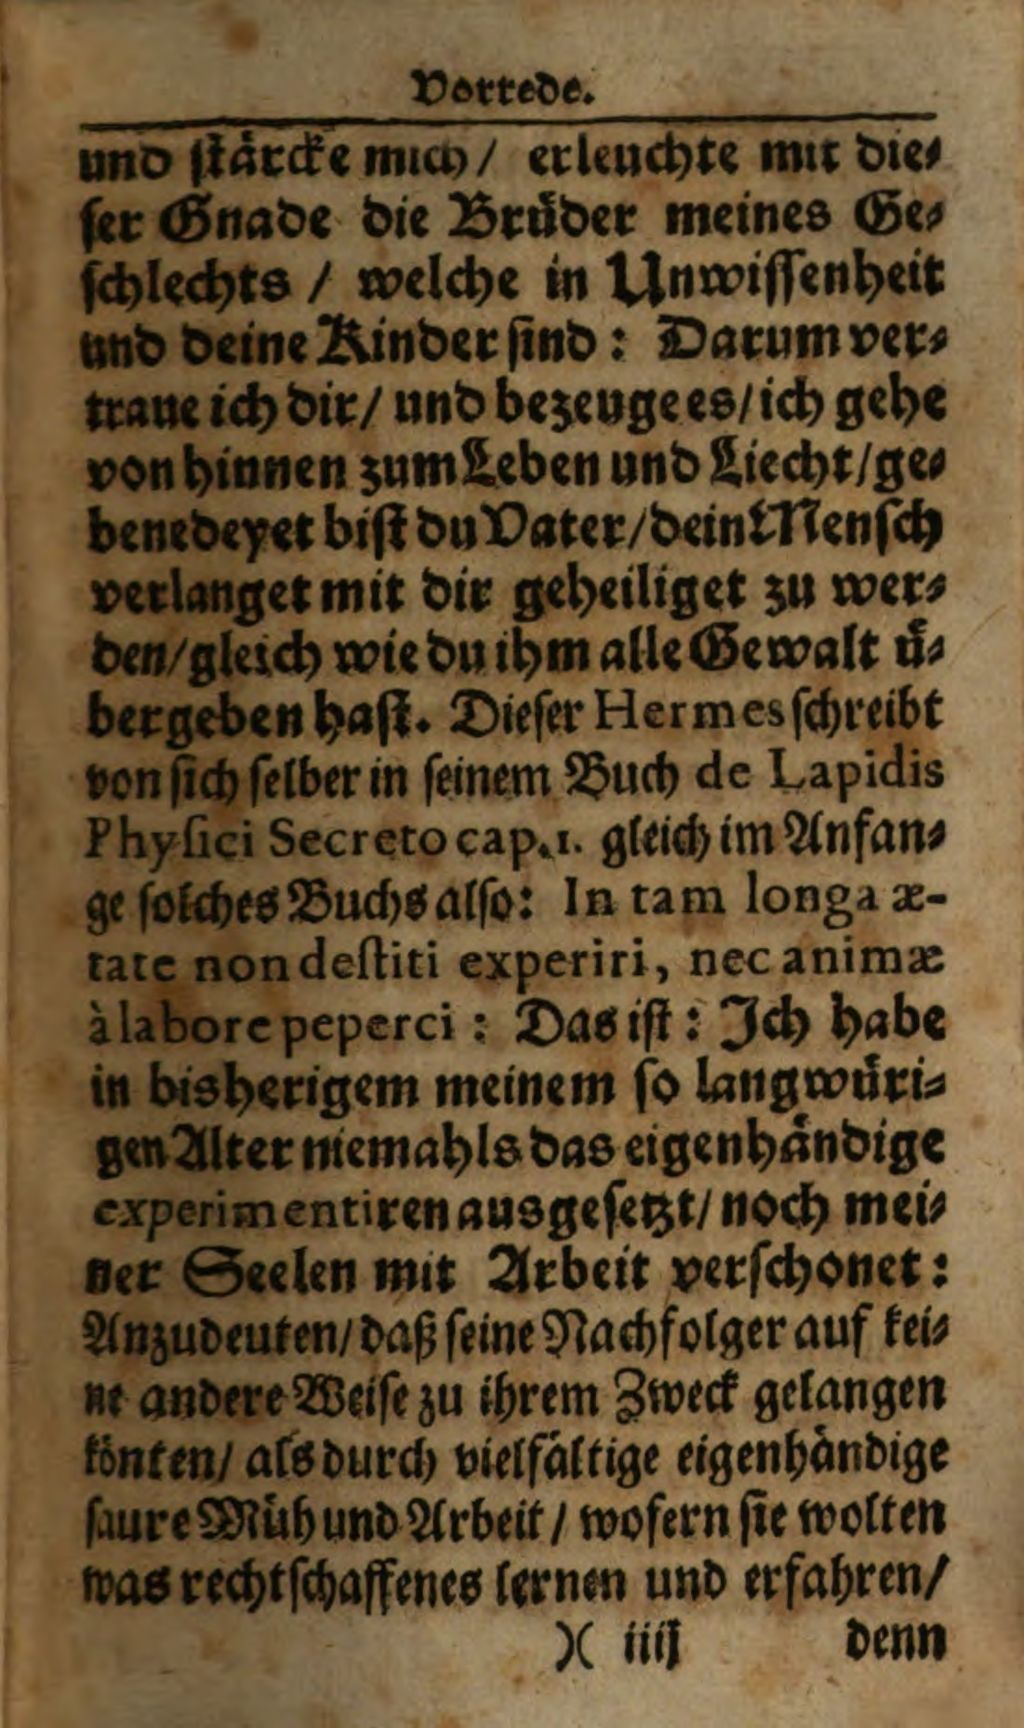 Vorrede.
und ſtärcke mich / erleuchte mit die⸗
ſer Gnade die Brüder meines Ge⸗
ſchlechts / welche in Unwiſſenheit
und deine Kinder ſind : Darum ver⸗
traue ich dir / und bezeuge es / ich gehe
von hinnen zum Leben und Liecht / ge⸗
benedeyet biſt du Vater / dein Menſch
verlanget mit dir geheiliget zu wer⸗
den / gleich wie du ihm alle Gewalt ü⸗
bergeben haſt. Dieſer Hermes ſchreibt
von ſich ſelber in ſeinem Buch de Lapidis
Phyſici Secreto cap. 1. gleich im Anfan⸗
ge ſolches Buchs alſo: In tam longa æ-
tate non deſtiti experiri, nec animæ
à labore peperci : Das iſt : Ich habe
in bisherigem meinem ſo langwüri⸗
gen Alter niemahls das eigenhändige
experimentiren ausgeſetzt / noch mei⸗
ner Seelen mit Arbeit verſchonet :
Anzudeuten / daß ſeine Nachfolger auf kei⸗
ne andere Weiſe zu ihrem Zweck gelangen
könten / als durch vielfältige eigenhändige
ſaure Müh und Arbeit / wofern ſie wolten
was rechtſchaffenes lernen und erfahren /
)( iiij denn